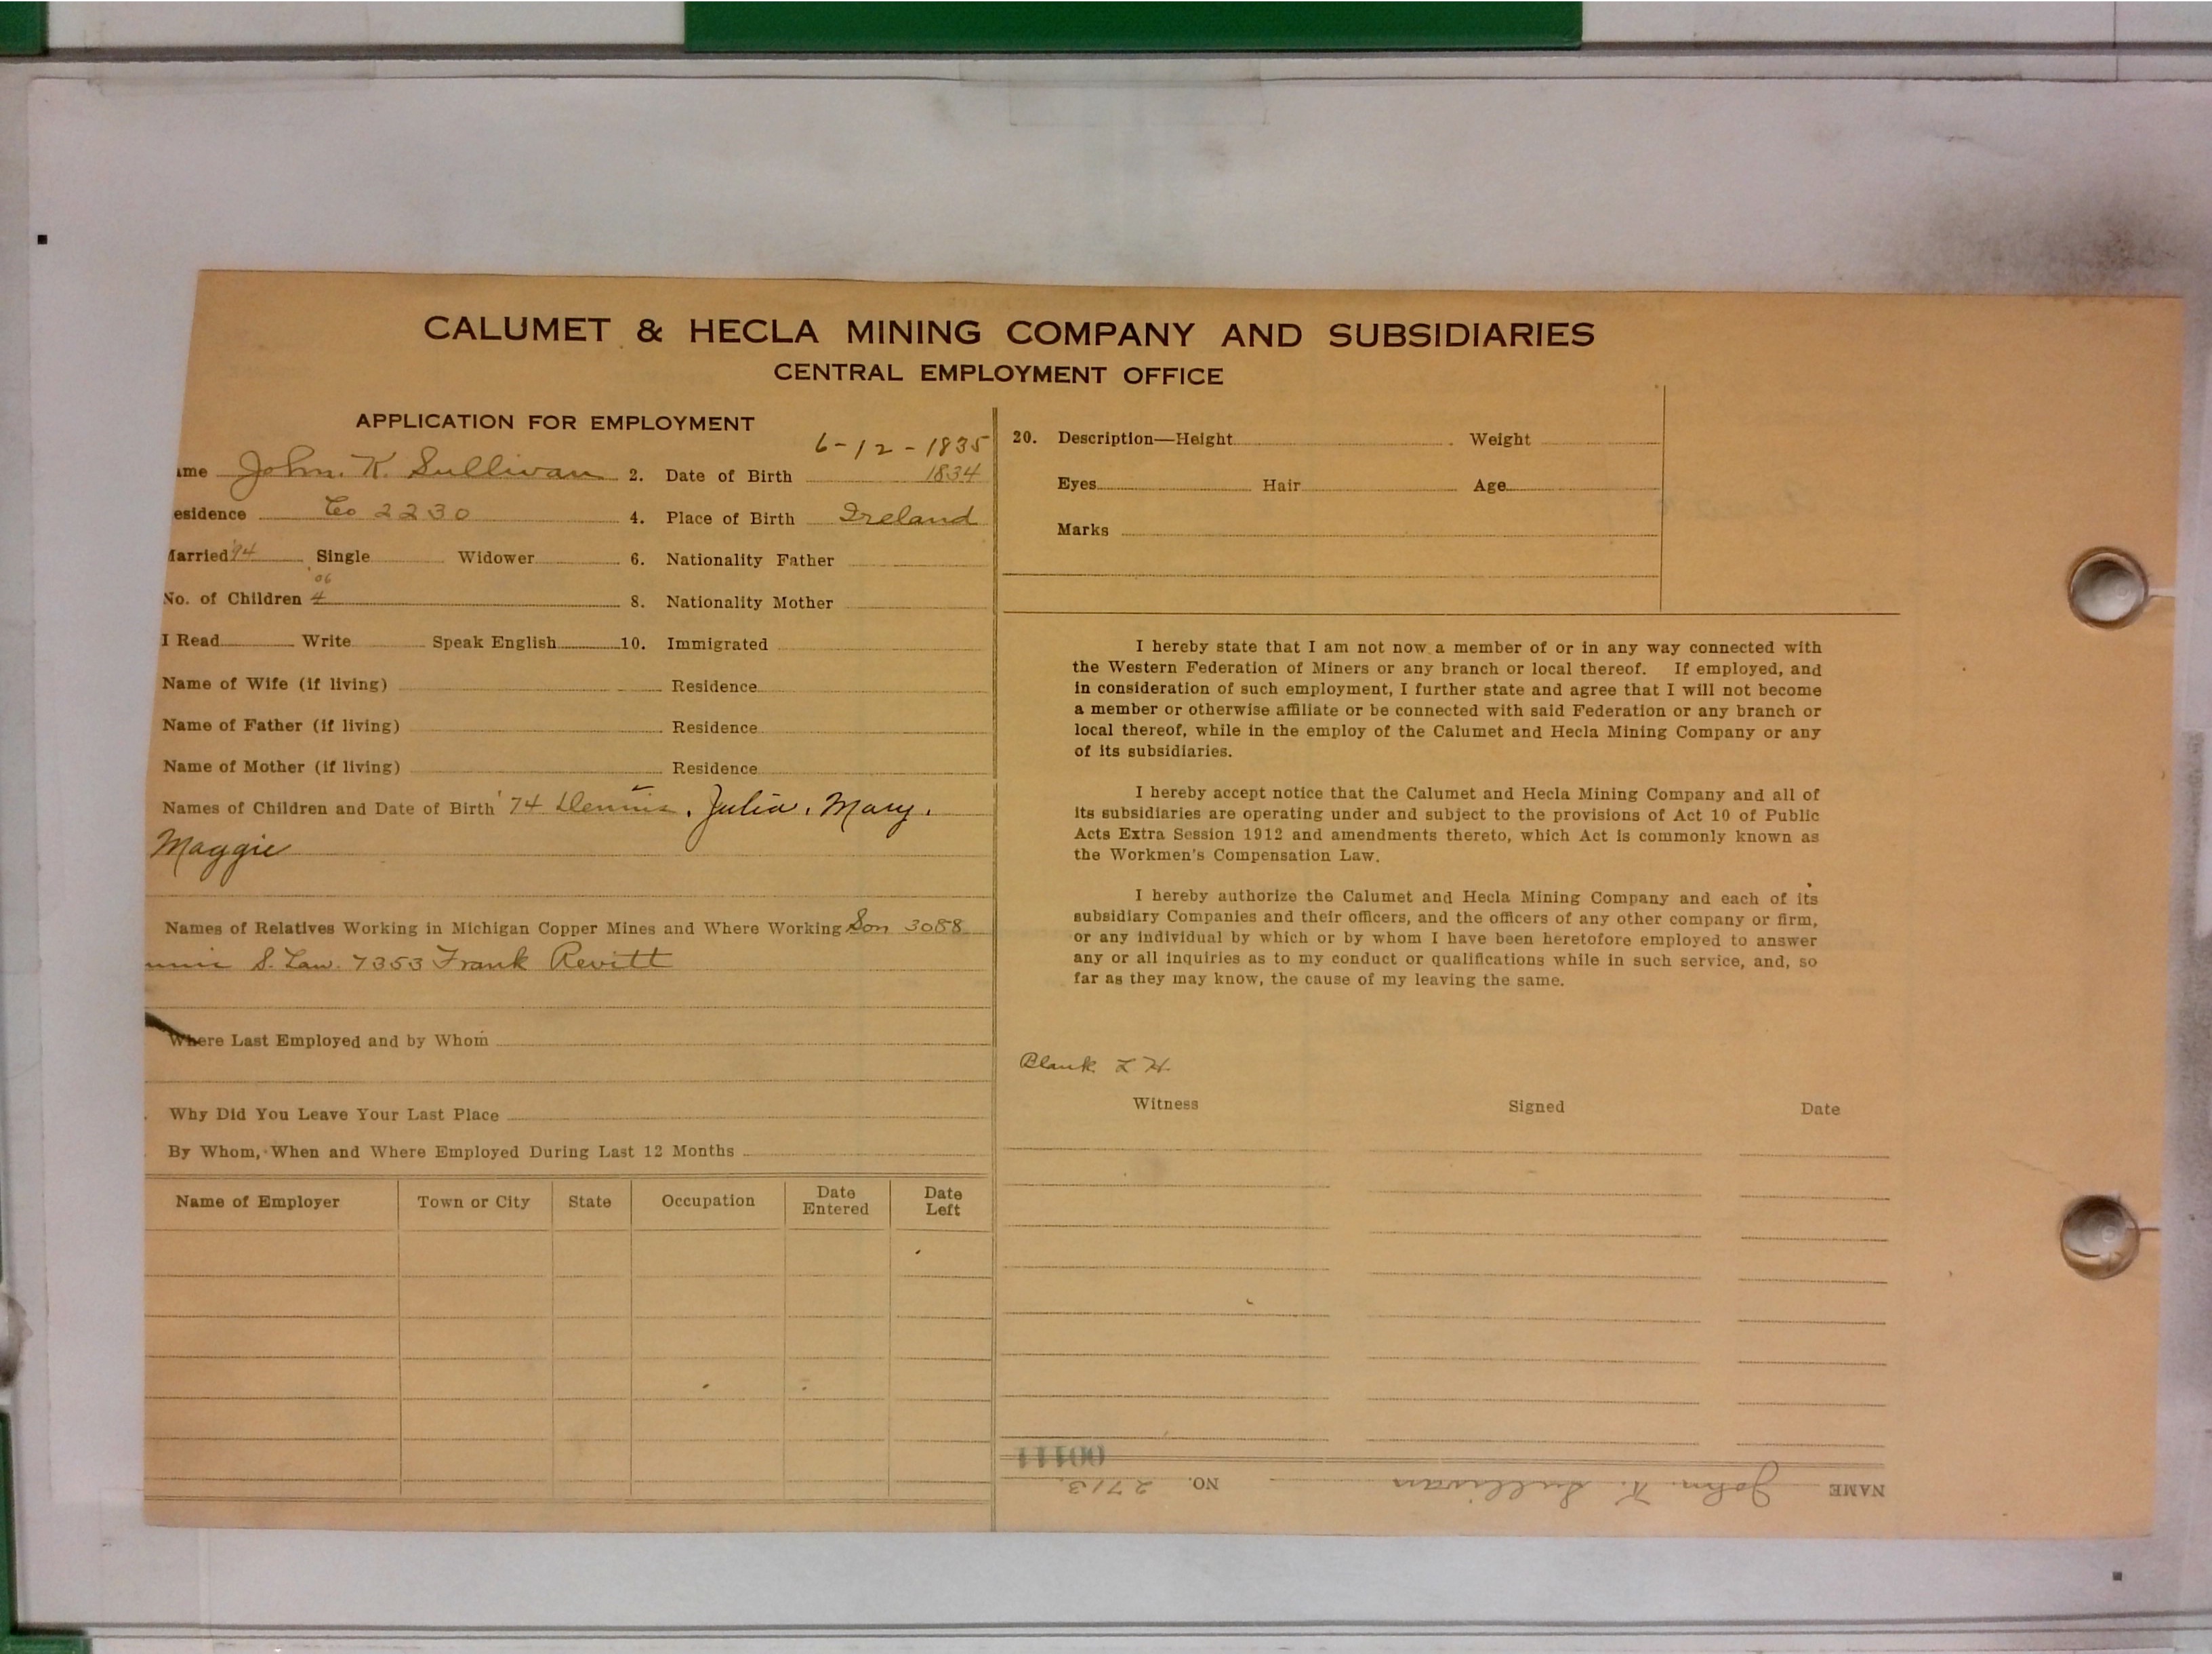 CALUMET & HECLA MINING COMPANY AND SUBSIDIARIES
CENTRAL EMPLOYMENT OFFICE
APPLICATION FOR EMPLOYMENT
6-12-1835
ame John. K. Sullivan 2. Date of Birth 1834
esidence Co 2230 4. Place of Birth Ireland
Married '94 Single Widower 6. Nationality Father
'06
No. of Children 4 8. Nationality Mother
I Read Write Speak English 10. Immigrated
Name of Wife (if living) Residence
Name of Father (if living) Residence
Name of Mother (if living) Residence
Names of Children and Date of Birth '74 Dennis, Julia, Mary,
Maggie
Names of Relatives Working in Michigan Copper Mines and Where Working Son 3088
nnis S. Law. 7353 Frank Revitt
Where Last Employed and by Whom
Why Did You Leave Your Last Place
By Whom, When and Where Employed During Last 12 Months
Name of Employer Town or City State Occupation Date Entered Date Left
20. Description—Height Weight
Eyes Hair Age
Marks
I hereby state that I am not now a member of or in any way connected with
the Western Federation of Miners or any branch or local thereof. If employed, and
in consideration of such employment, I further state and agree that I will not become
a member or otherwise affiliate or be connected with said Federation or any branch or
local thereof, while in the employ of the Calumet and Hecla Mining Company or any
of its subsidiaries.
I hereby accept notice that the Calumet and Hecla Mining Company and all of
its subsidiaries are operating under and subject to the provisions of Act 10 of Public
Acts Extra Session 1912 and amendments thereto, which Act is commonly known as
the Workmen's Compensation Law.
I hereby authorize the Calumet and Hecla Mining Company and each of its
subsidiary Companies and their officers, and the officers of any other company or firm,
or any individual by which or by whom I have been heretofore employed to answer
any or all inquiries as to my conduct or qualifications while in such service, and, so
far as they may know, the cause of my leaving the same.
Blank L H.
Witness Signed Date
NAME John. K. Sullivan NO. 2713
00111